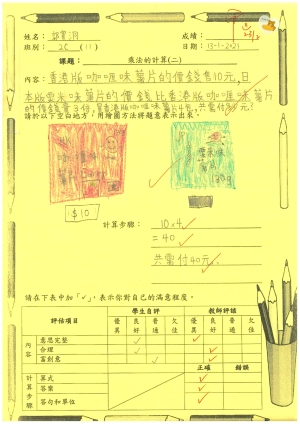 姓名：
成績：
班別： 2C (11)
日期： 13-1-2021
課題： 乘法的計算(二)
內容：香港版咖喱味薯片的價錢售10元,日
本版粟米味薯片的價錢比香港版咖喱味薯片
的價錢貴3倍,買香港版咖喱味薯片4包,共需付40元?
請於以下空白地方，用繪圖方法將題意表示出來。
$10
計算步驟：
10×4
=40
共需付40元。
請在下表中加「✓」，表示你對自己的滿意程度。
評估項目 學生自評 教師評語
優異 良好 普通 欠佳 優異 良好 普通 欠佳
內容 意思完整
合理
富創意
正確 錯誤
計算步驟 算式
答案
答句和單位